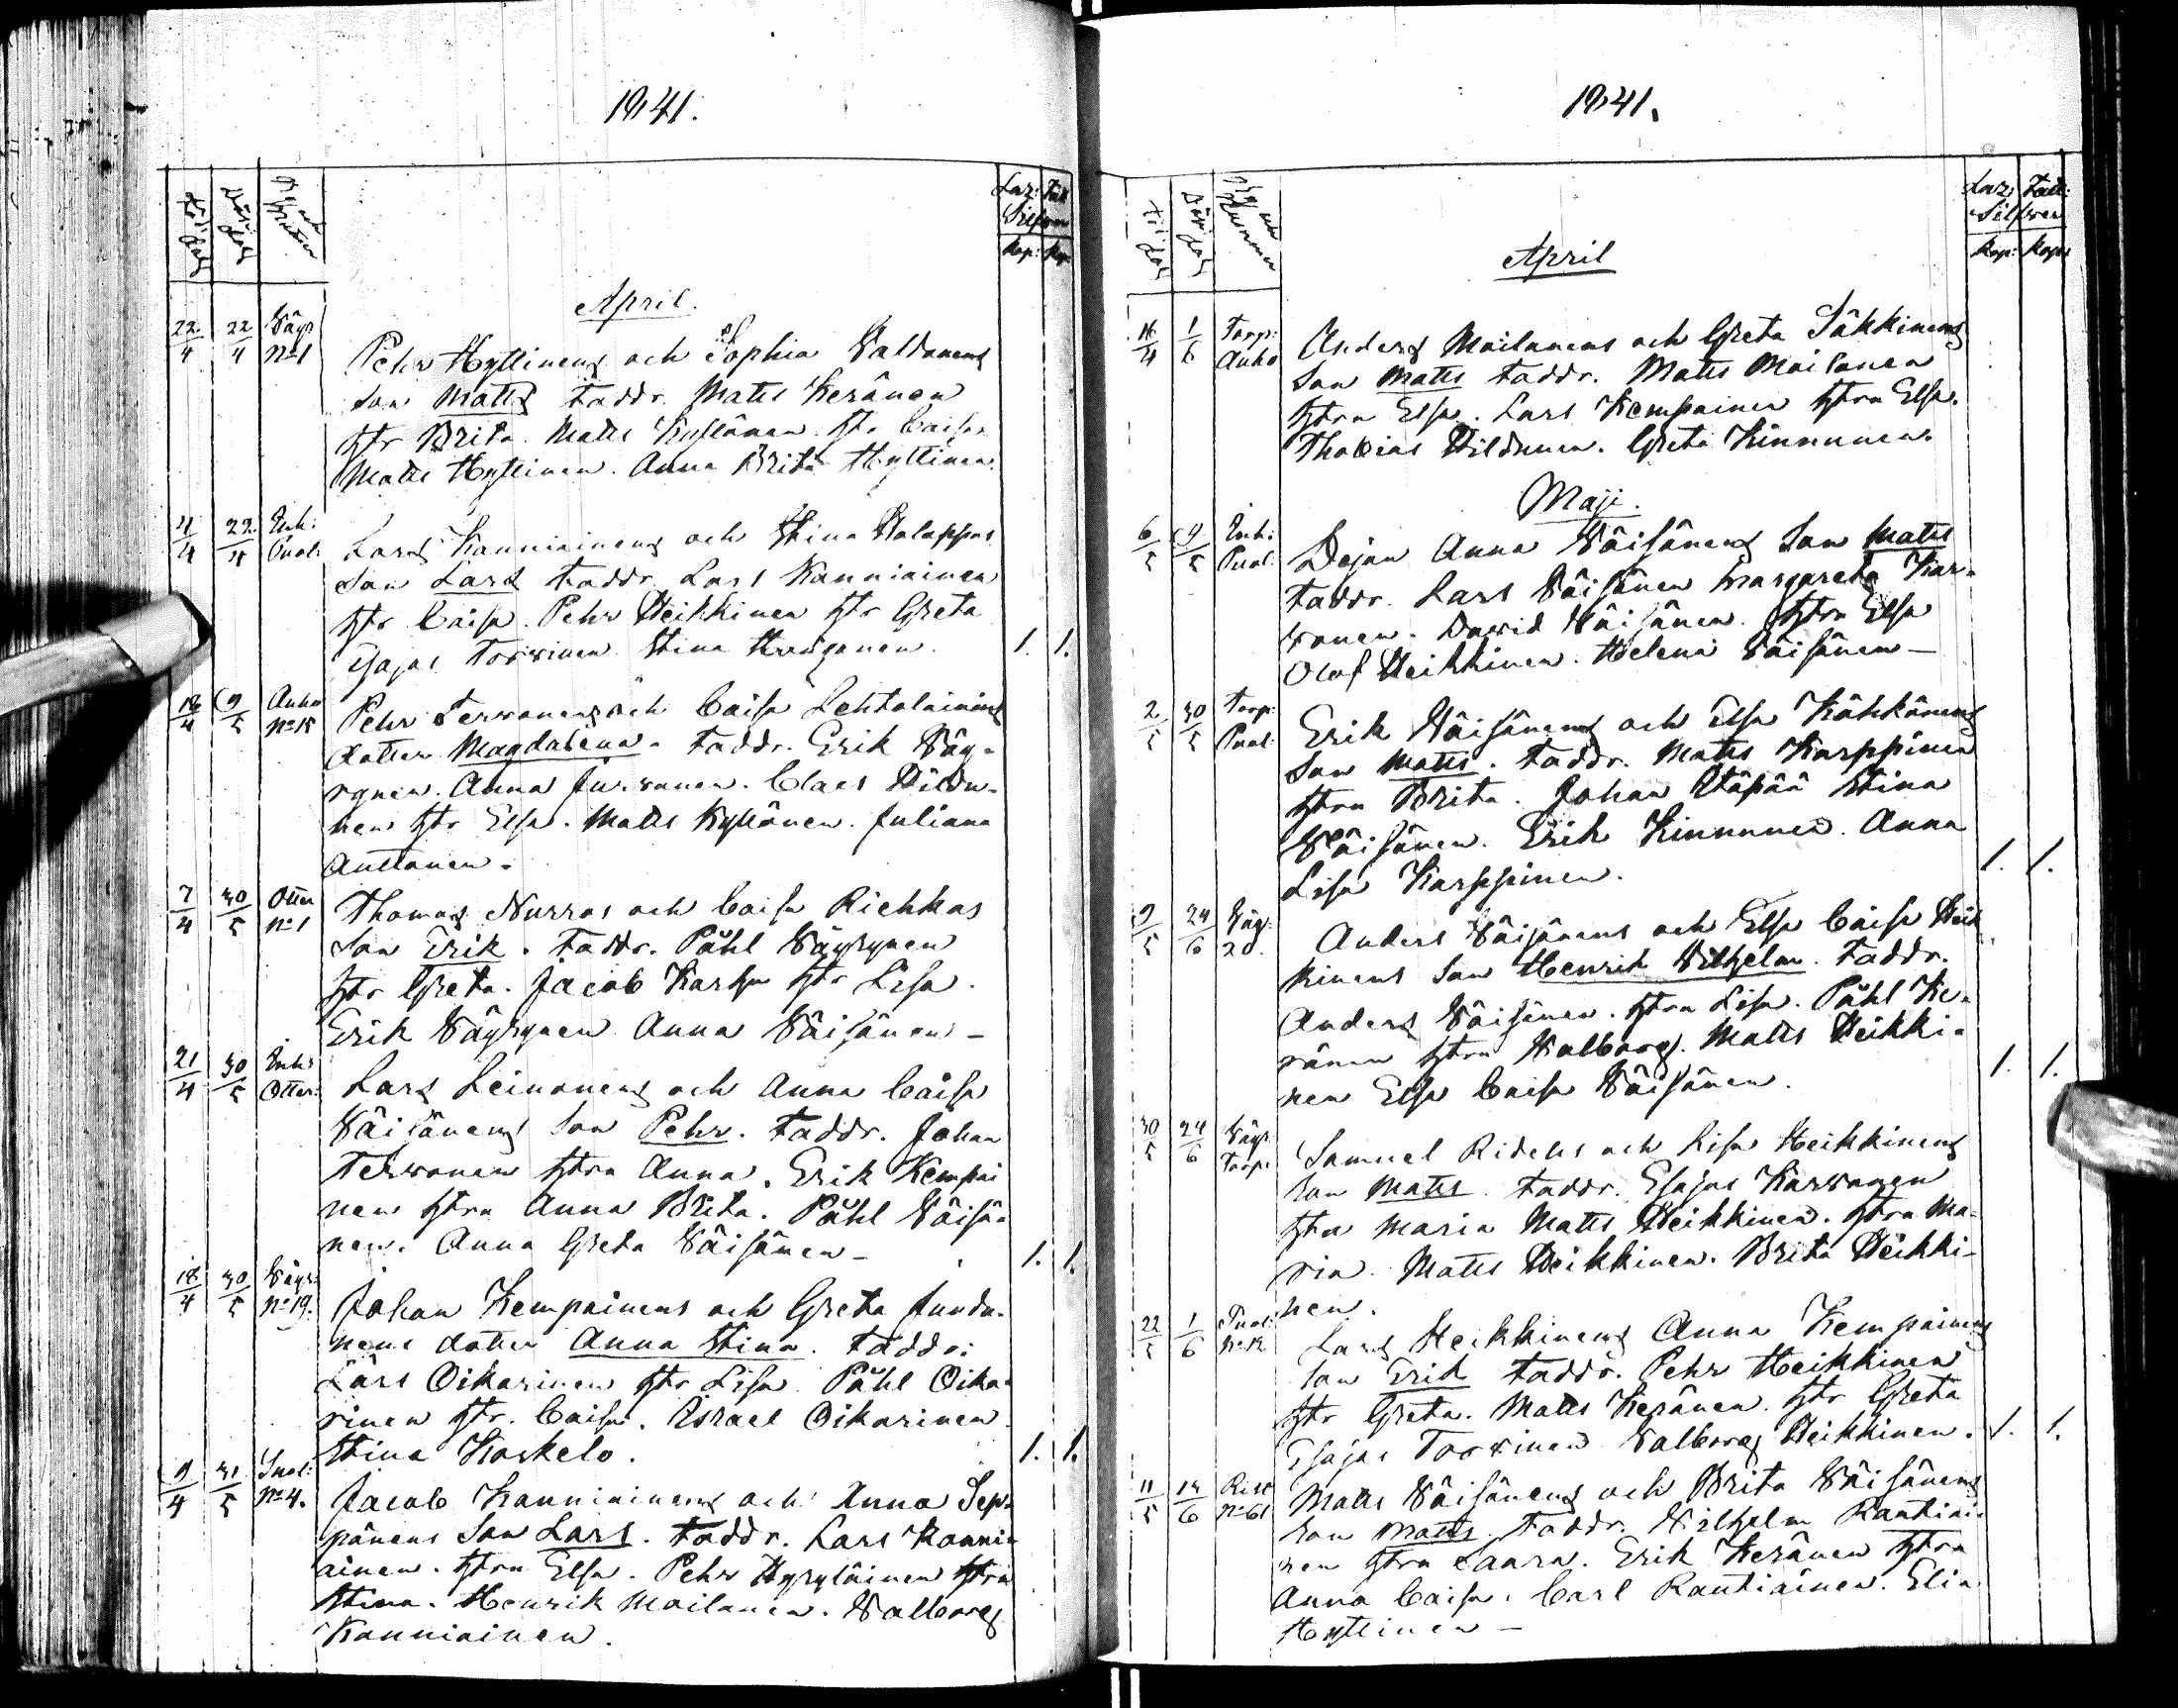 1841.
Föd: dag
Döp: dag
By och Nummer
Laz: Fatt
Silfwer
Kop: Kop
April.
22/4 22/4 Väyr No 1
Pehr Hyttinens och Sophia Valdanens
Son Matts Faddr. Matts Keränen
hstr Brita. Matts Kyllönen hstr Caisa
Matts Hyttinen. Anna Brita Hyttinen.
4/4 22/4 Enh: Puol:
Lars Kanniainens och Stina Halappas
Son Lars Faddr. Lars Kanniainen
hstr Caisa. Pehr Heikkinen hstr Greta
Esajas Torvinen Stina 1. 1.
18/4 9/5 Auho No 15
Pehr Tervonens och Caisa Lehtolainens
dotter Magdalena. Faddr. Erik Väy-
rynen. Anna Jurvanen. Claes Hildu-
nen hstr Elsa. Matts Kyllönen. Juliana
Anttonen.
7/4 30/5 Otter No 1
Thomas Nurros och Caisa Riehkas
Son Erik. Faddr. Påhl Väyrynen
hstr Greta. Jacob Karhu hstr Lisa.
Erik Väyrynen Anna Väisänen –
21/4 30/5 Enh: Otter:
Lars Leinonens och Anna Caisa
Väisänens Son Pehr. Faddr. Johan
Tervonen hstru Anna. Erik Kempai
nen hstru Anna Brita. Påhl Väisä-
nen. Anna Greta Väisänen – 1. 1.
18/4 30/5 Väyr: No 19.
Johan Kempainens och Greta Juntu-
nens dotter Anna Stina. Faddr:
Lars Oikarinen hstr Lisa Påhl Oika-
rinen hstr. Caisa. Israel Oikarinen.
Stina Koskelo. 1. 1.
9/4 31/5 Puol: No 4.
Jacob Kanniainens och Anna Sep-
pänens Son Lars. Faddr. Lars Kanni-
ainen. hstru Elsa. Pehr Hyryläinen hstru
Stina. Henrik Mailanen. Valborg
Kanniainen.
1841.
Föd: dag
Döp: dag
By och Nummer
Laz: Fatt:
Silfwer
Kop: Kop:
April
18/4 1/6 Torp: Auho
Anders Mailanens och Greta Säkkinens
Son Matts Faddr. Matts Mailanen
hstru Elsa. Lars Kempainen hstru Elsa.
Thobias Hildunen. Greta Kinnunen.
Maji.
6/5 9/5 Enh: Puol:
Dejan Anna Väisänens Son Matts
Faddr. Lars Väisänen Margareta Kar-
vonen. David Väisänen. hstru Elsa
Olof Heikkinen. Helena Väisänen –
2/5 30/5 Torp: Puol:
Erik Väisänens och Elsa Kähkönens
Son Matts. Faddr. Matts Karppinen
hstru Brita. Johan Ytäpää Stina
Väisänen. Erik Kinnunen. Anna
Lisa Karppinen. 1. 1.
9/5 24/6 Väy: 20.
Anders Väisänens och Elsa Caisa Heik
kinens Son Henrik Vilhelm. Faddr.
Anders Väisänen. hstru Lisa. Påhl Ke-
ränen hstru Valborg. Matts Heikki-
nen Elsa Caisa Väisänen. 1. 1.
30/5 24/6 Väyr: Torp:
Samuel Ridells och Lisa Heikkinens
Son Matts. Faddr. Esajas Karvonen
hstru Maria Matts Heikkinen. hstru Ma-
ria. Matts Heikkinen. Brita Heikki-
nen.
22/5 1/6 Puol: No 12
Lars Heikkinens Anna Kempainens
Son Erik Faddr. Pehr Heikkinen
hstr Greta. Matts Keränen. hstr Greta
Esajas Torvinen Valborg Heikkinen. 1. 1.
11/5 14/6 Rist No 61
Matts Väisänens och Brita Väisänens
Son Matts. Faddr. Vilhelm Rautiai-
nen hstru Laara. Erik Keränen hstru
Anna Caisa. Carl Rautiainen. Elin
Hyttinen –